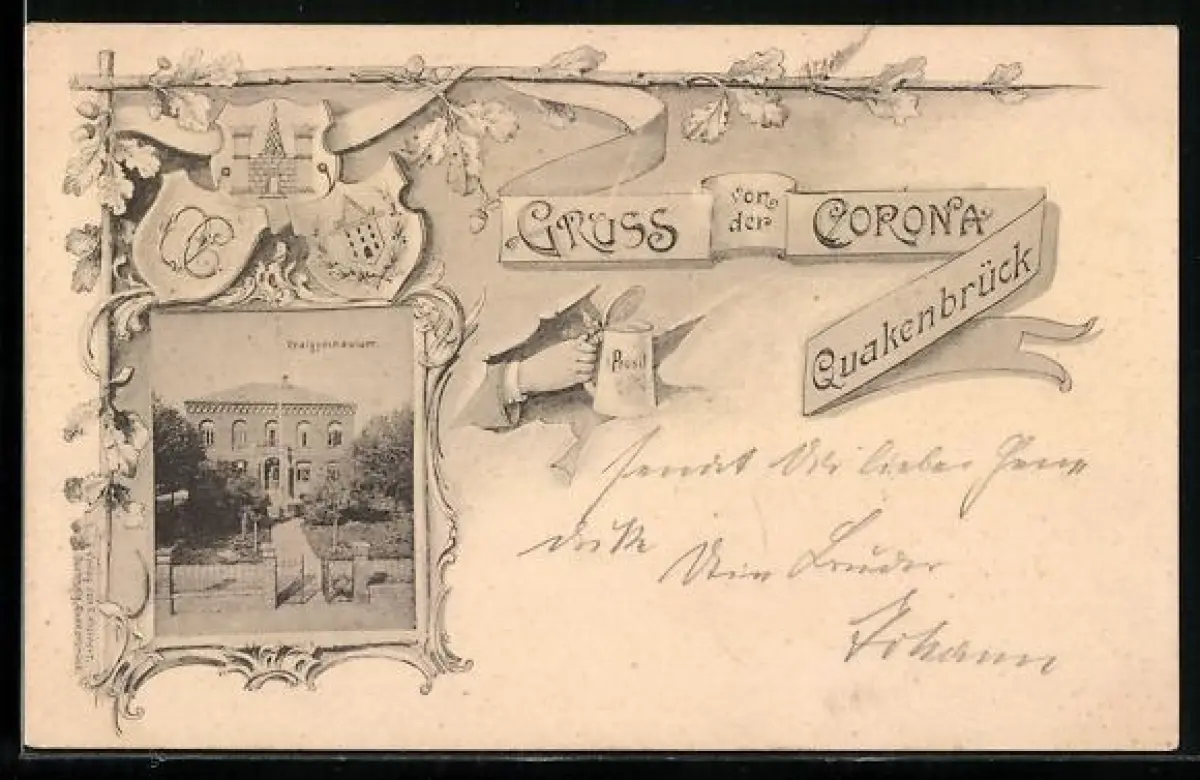 GRUSS von der CORONA
Quakenbrück
Realgymnasium.
Prosit
sendet Dir lieber
Dein Bruder
Johann